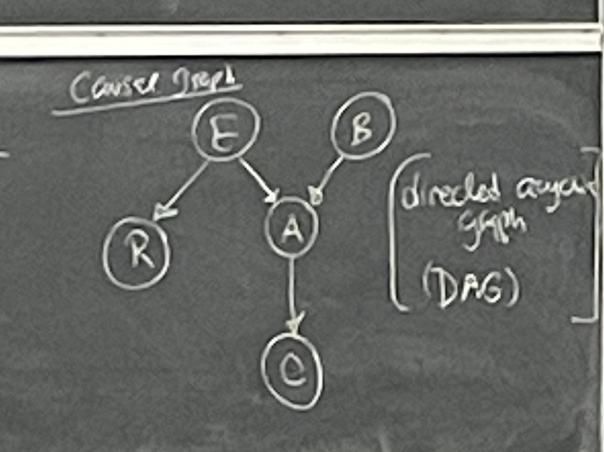 Causal Graph
E
B
R
A
C
directed acyclic
graph
(DAG)